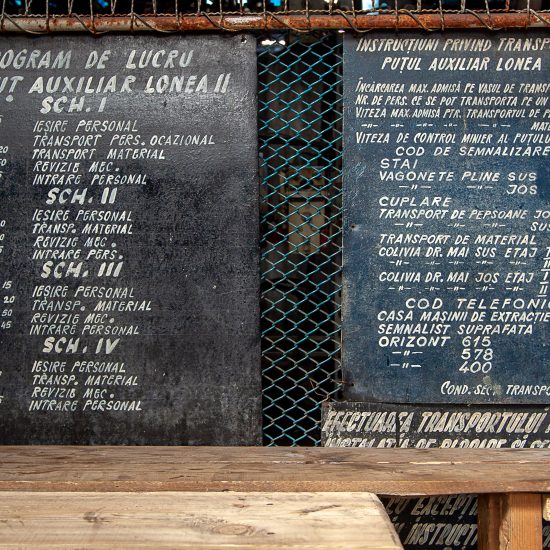 PROGRAM DE LUCRU
PUȚ AUXILIAR LONEA II
SCH. I
IEȘIRE PERSONAL
TRANSPORT PERS. OCAZIONAL
TRANSPORT MATERIAL
REVIZIE MEC.
INTRARE PERSONAL
SCH. II
IEȘIRE PERSONAL
TRANSP. MATERIAL
REVIZIE MEC.
INTRARE PERS.
SCH. III
IEȘIRE PERSONAL
TRANSP. MATERIAL
REVIZIE MEC.
INTRARE PERSONAL
SCH. IV
IEȘIRE PERSONAL
TRANSP. MATERIAL
REVIZIE MEC.
INTRARE PERSONAL
INSTRUCȚIUNI PRIVIND TRANSP
PUȚUL AUXILIAR LONEA
ÎNCĂRCAREA MAX. ADMISĂ PE VASUL DE TRANS
NR. DE PERS. CE SE POT TRANSPORTA PE UN
VITEZA MAX. ADMISĂ PTR. TRANSPORTUL DE P
-"- -"- -"- -"- -"- MA
VITEZA DE CONTROL MINIER AL PUȚULU
COD DE SEMNALIZARE
STAI
VAGONETE PLINE SUS
-"- -"- JOS
CUPLARE
TRANSPORT DE PEPSOANE JO
-"- -"- -"- SU
TRANSPORT DE MATERIAL
COLIVIA DR. MAI SUS ETAJ I
-"- -"- -"- -"-
COLIVIA DR. MAI JOS ETAJ
-"- -"- -"- -"-
COD TELEFONI
CASA MAȘINII DE EXTRACȚIE
SEMNALIST SUPRAFATA
ORIZONT 615
-"- 578
-"- 400
COND. SEC. TRANSPO
EFECTUAREA TRANSPORTULUI